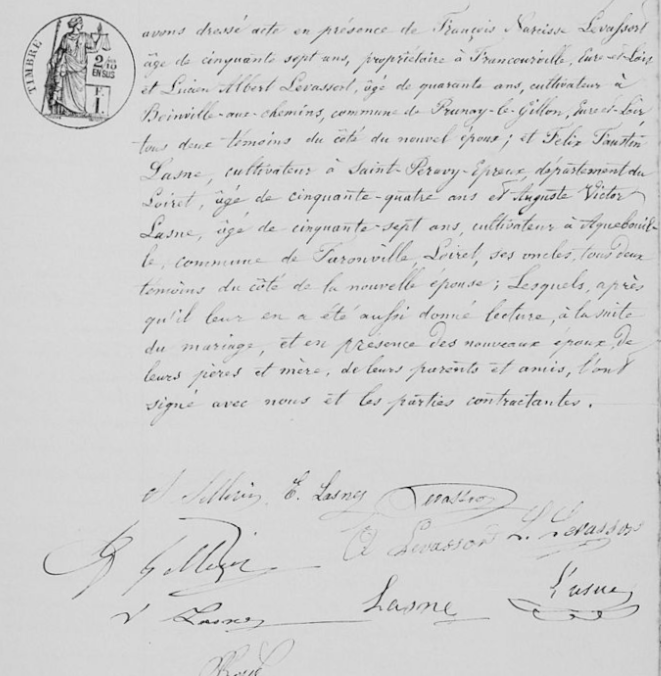 TIMBRE
2/10
EN SUS
F.
1
avons dressé acte en présence de François Narcisse Levassort
âge de cinquante sept ans, propriétaire à Francourville, Eure-et-Loir
et Lucien Albert Levassort, âgé de quarante ans, cultivateur à
Boinville-aux-chemins, commune de Prunay-le-Gillon, Eure-et-Loir
tous deux témoins du côté du nouvel époux; et Felix Faustin
Lasne, cultivateur à Saint-Peravy-Epreux, département du
Loiret, âgé de cinquante-quatre ans et Auguste Victor
Lasne, âgé de cinquante-sept ans, cultivateur à Aguebouil-
le, commune de Faronville, Loiret, ses oncles, tous deux
témoins du côté de la nouvelle épouse; Lesquels, après
qu'il leur en a été aussi donné lecture, à la suite
du mariage, et en présence des nouveaux époux, de
leurs pères et mère, de leurs parents et amis, l'ont
signé avec nous et les parties contractantes.
E. Lasne Levassor
Levassort L. Levassort
V Lasne Lasne Lasne